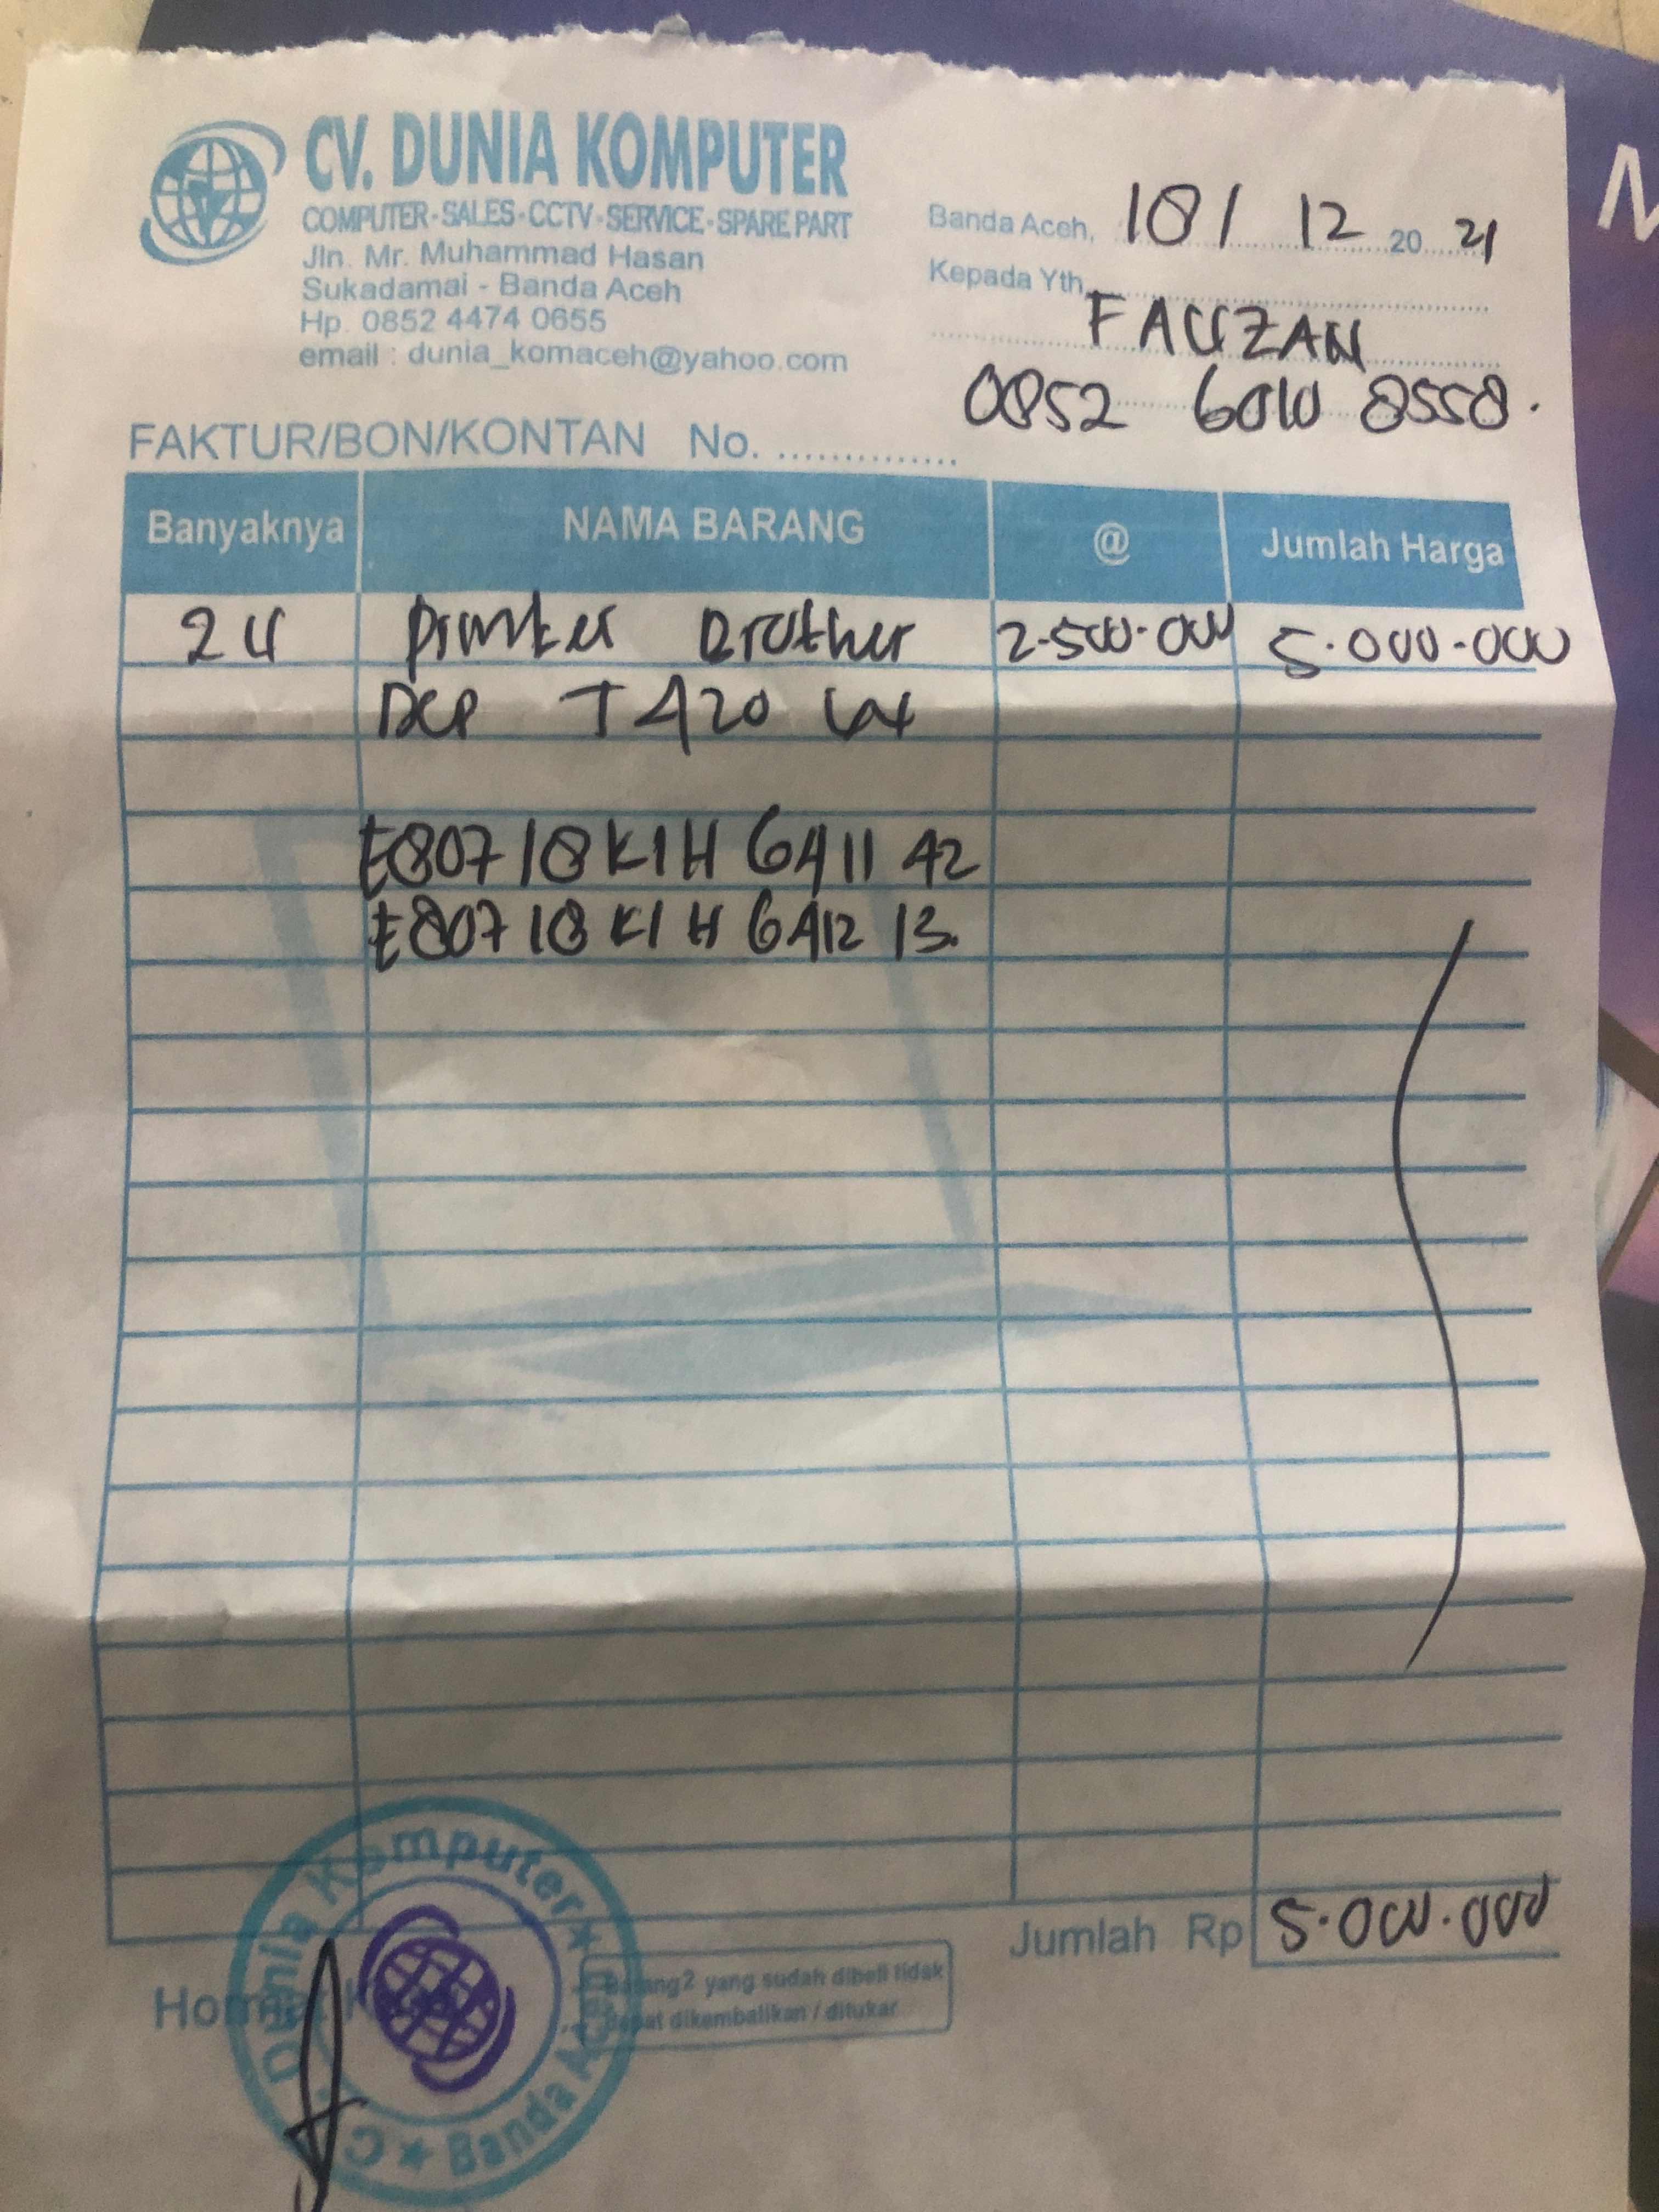 CV. DUNIA KOMPUTER
COMPUTER-SALES-CCTV-SERVICE-SPARE PART
Jln. Mr. Muhammad Hasan
Sukadamai - Banda Aceh
Hp. 0852 4474 0655
email : dunia_komaceh@yahoo.com
Banda Aceh, 18 / 12 20 21
Kepada Yth.
FAUZAN
0852 6010 8558.
FAKTUR/BON/KONTAN No. ..............
Banyaknya NAMA BARANG @ Jumlah Harga
2 U Printer Brother 2.500.000 5.000.000
DCP T420 W
E80718K1H6A1142
E80718K1H6A1213.
Jumlah Rp 5.000.000
Hormat
Barang2 yang sudah dibeli tidak
dapat dikembalikan / ditukar
CV. Dunia Komputer ★ Banda Aceh ★